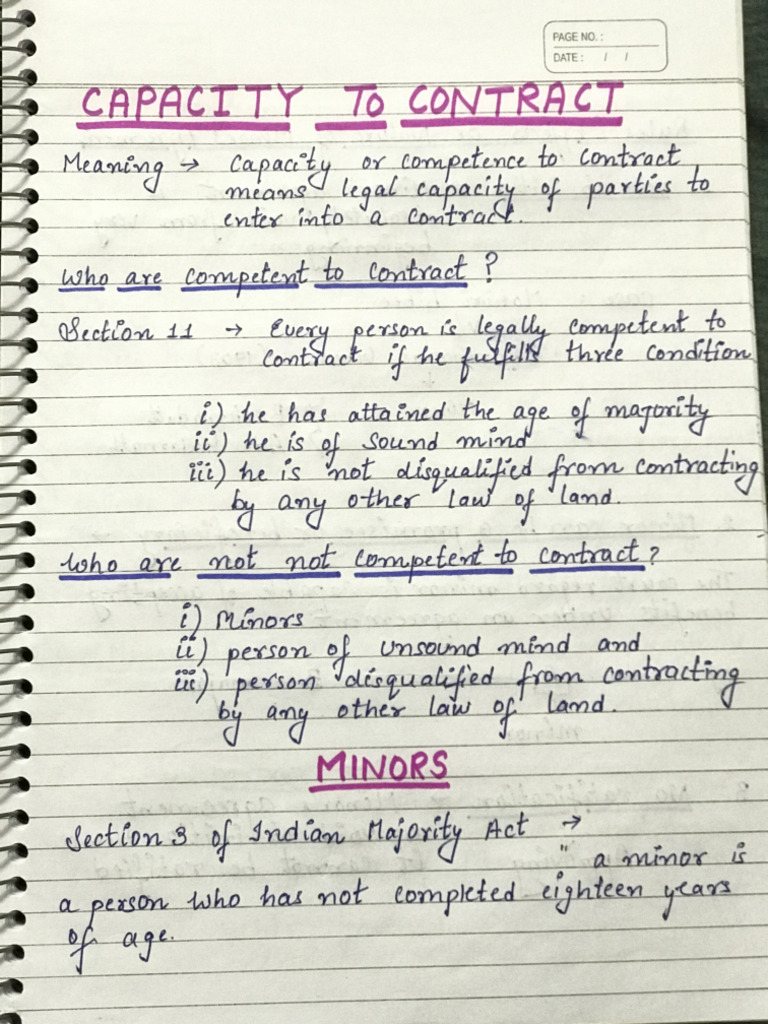 PAGE NO. :
DATE : / /
CAPACITY TO CONTRACT
Meaning → Capacity or competence to contract
means legal capacity of parties to
enter into a contract.
Who are competent to contract ?
Section 11 → Every person is legally competent to
contract if he fulfills three condition
i) he has attained the age of majority
ii) he is of sound mind
iii) he is not disqualified from contracting
by any other law of land.
Who are not not competent to contract ?
i) Minors
ii) person of unsound mind and
iii) person disqualified from contracting
by any other law of land.
MINORS
Section 3 of Indian Majority Act →
" a minor is
a person who has not completed eighteen years
of age.